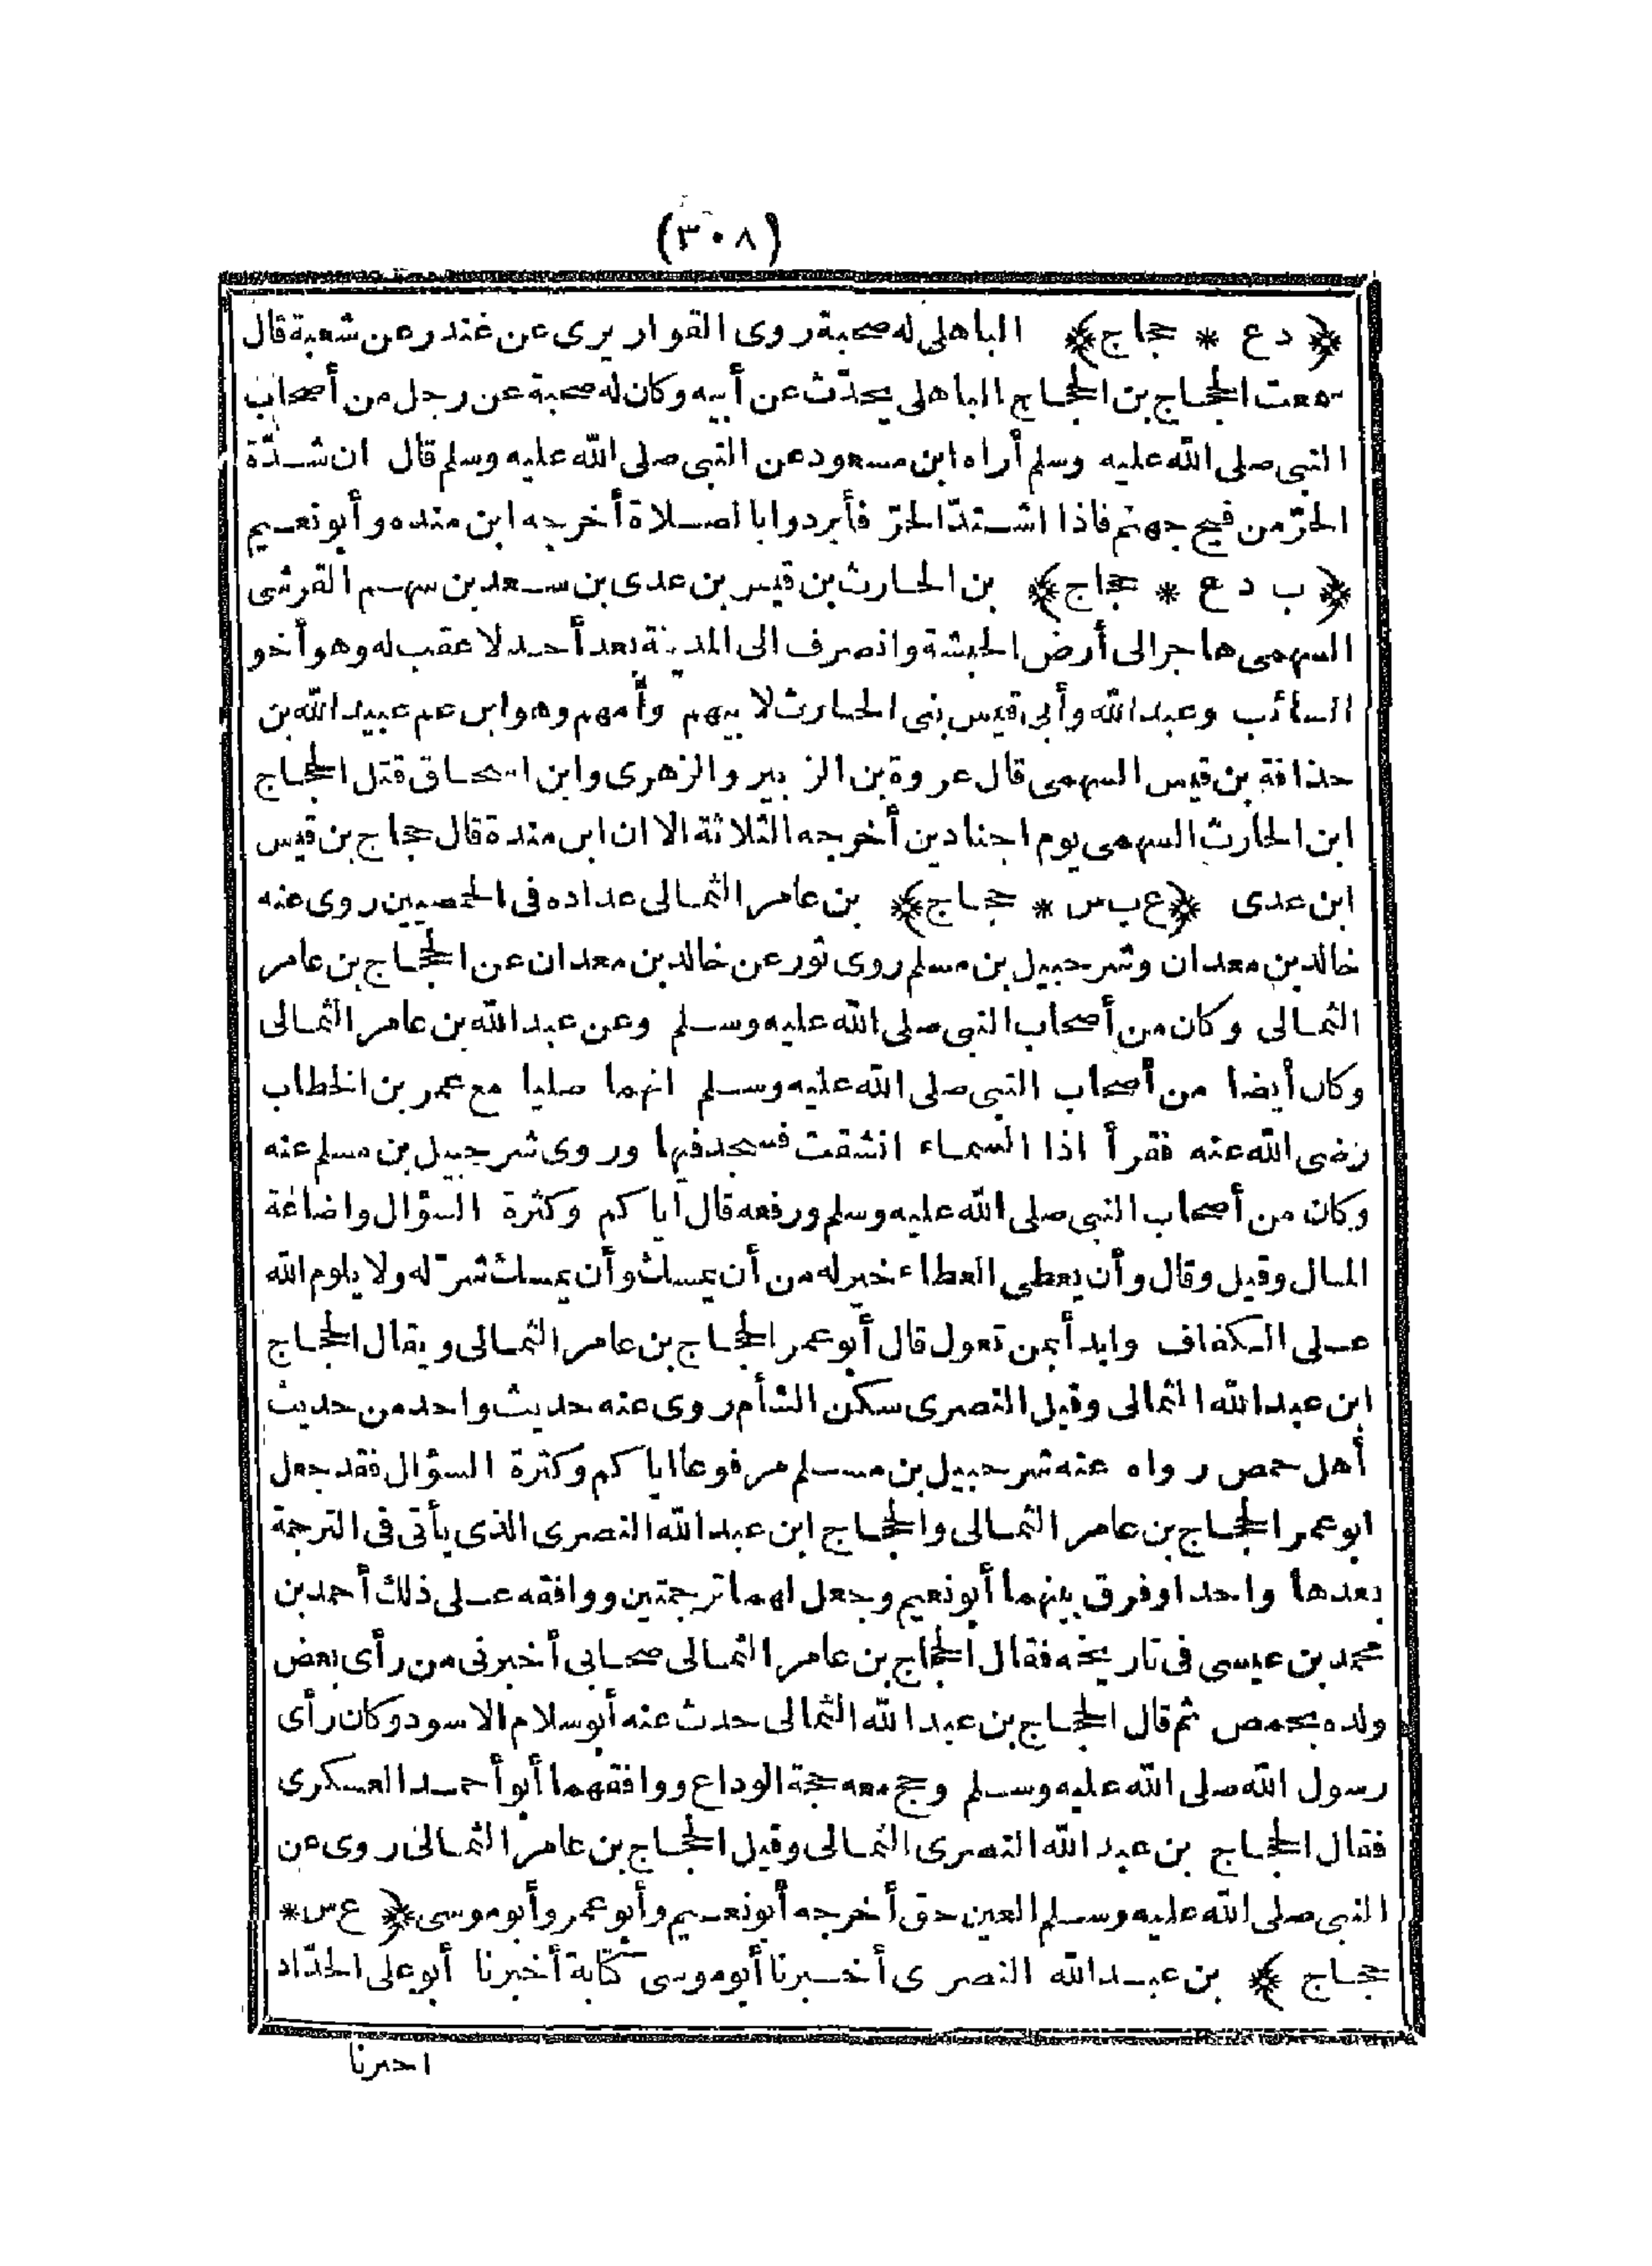 (٣٠٨)
﴿ د ع * حجاج﴾ الباهلى له صحبة روى القواريرى عن غندر عن شعبة قال
سمعت الحجاج بن الحجاج الباهلى يحدّث عن أبيه وكان له صحبة عن رجل من أصحاب
النبى صلى الله عليه وسلم أراه ابن مسعود عن النبى صلى الله عليه وسلم قال ان شدّة
الحرّ من فيح جهنم فاذا اشتدّ الحرّ فأبردوا بالصلاة أخرجه ابن منده وأبو نعيم
﴿ ب د ع * حجاج﴾ بن الحارث بن قيس بن عدى بن سعد بن سهم القرشى
السهمى هاجر الى أرض الحبشة وانصرف الى المدينة بعد أحد لا عقب له وهو أخو
السائب وعبد الله وأبى قيس بنى الحارث لابيهم وأمهم وهو ابن عم عبيد الله بن
حذافة بن قيس السهمى قال عروة بن الزبير والزهرى وابن اسحاق قتل الحجاج
ابن الحارث السهمى يوم اجنادين أخرجه الثلاثة الا ان ابن مندة قال حجاج بن قيس
ابن عدى ﴿ع ب س * حجاج﴾ بن عامر الثمالى عداده فى الحمصيين روى عنه
خالد بن معدان وشرحبيل بن مسلم روى ثور عن خالد بن معدان عن الحجاج بن عامر
الثمالى وكان من أصحاب النبى صلى الله عليه وسلم وعن عبد الله بن عامر الثمالى
وكان أيضا من أصحاب النبى صلى الله عليه وسلم انهما صليا مع عمر بن الخطاب
رضى الله عنه فقرأ اذا السماء انشقت فسجد فيها وروى شرحبيل بن مسلم عنه
وكان من أصحاب النبى صلى الله عليه وسلم ورفعه قال أياكم وكثرة السؤال واضاعة
المال وقيل وقال وأن يعطى العطاء خير له من أن يمسك وأن يمسك شرّ له ولا يلوم الله
على الكفاف وابدأ بمن تعول قال أبو عمر الحجاج بن عامر الثمالى ويقال الحجاج
ابن عبد الله الثمالى وقيل النصرى سكن الشأم روى عنه حديث واحد من حديث
أهل حمص رواه عنه شرحبيل بن مسلم مرفوعا اياكم وكثرة السؤال فقد جعل
ابو عمر الحجاج بن عامر الثمالى والحجاج ابن عبد الله النصرى الذى يأتى فى الترجمة
بعدها واحدا وفرق بينهما أبو نعيم وجعل لهما ترجمتين ووافقه على ذلك أحمد بن
محمد بن عيسى فى تاريخه فقال الحجاج بن عامر الثمالى صحابى أخبرنى من رأى بعض
ولده بحمص ثم قال الحجاج بن عبد الله الثمالى حدث عنه أبو سلام الاسود وكان رأى
رسول الله صلى الله عليه وسلم وحج معه حجة الوداع ووافقهما أبو أحمد العسكرى
فقال الحجاج بن عبد الله النصرى الثمالى وقيل الحجاج بن عامر الثمالى روى عن
النبى صلى الله عليه وسلم العين حق أخرجه أبو نعيم وأبو عمر وأبو موسى ﴿ ع س *
حجاج ﴾ بن عبد الله النصرى أخبرنا أبو موسى كتابة أخبرنا أبو على الحدّاد
اخبرنا